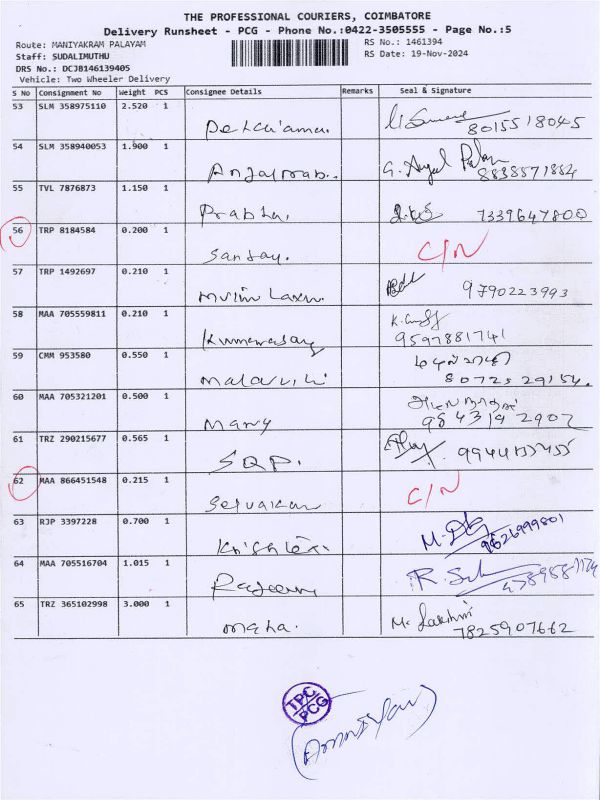 THE PROFESSIONAL COURIERS, COIMBATORE
Delivery Runsheet - PCG - Phone No.:0422-3505555 - Page No.:5
Route: MANIYAKRAM PALAYAM
RS No.: 1461394
Staff: SUDALIMUTHU
RS Date: 19-Nov-2024
DRS No.: DCJB146139405
Vehicle: Two Wheeler Delivery
S No Consignment No Weight PCS Consignee Details Remarks Seal & Signature
53 SLM 358975110 2.520 1
8015518045
54 SLM 358940053 1.900 1
8838571884
55 TVL 7876873 1.150 1 Prabha.
7339647800
56 TRP 8184584 0.200 1 Sanjay. C/N
57 TRP 1492697 0.210 1
9790223993
58 MAA 705559811 0.210 1
9597881741
59 CMM 953580 0.550 1
80725 29154.
60 MAA 705321201 0.500 1 Mary
98431 92907
61 TRZ 290215677 0.565 1
62 MAA 866451548 0.215 1 Selvakan C/N
63 RJP 3397228 0.700 1
9626999801
64 MAA 705516704 1.015 1
R.
65 TRZ 365102998 3.000 1 maha. M. Lakshmi
7825907662
TPC
PCG